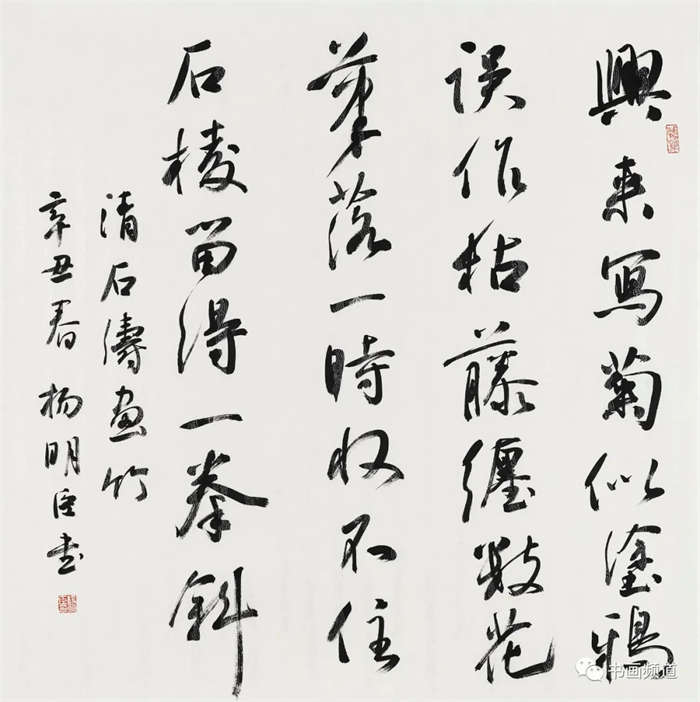 興来写菊似塗鴉
误作枯藤纏数花
筆落一時收不住
石棱留得一拳斜
清石濤畫竹
辛丑春杨明臣书
书画频道